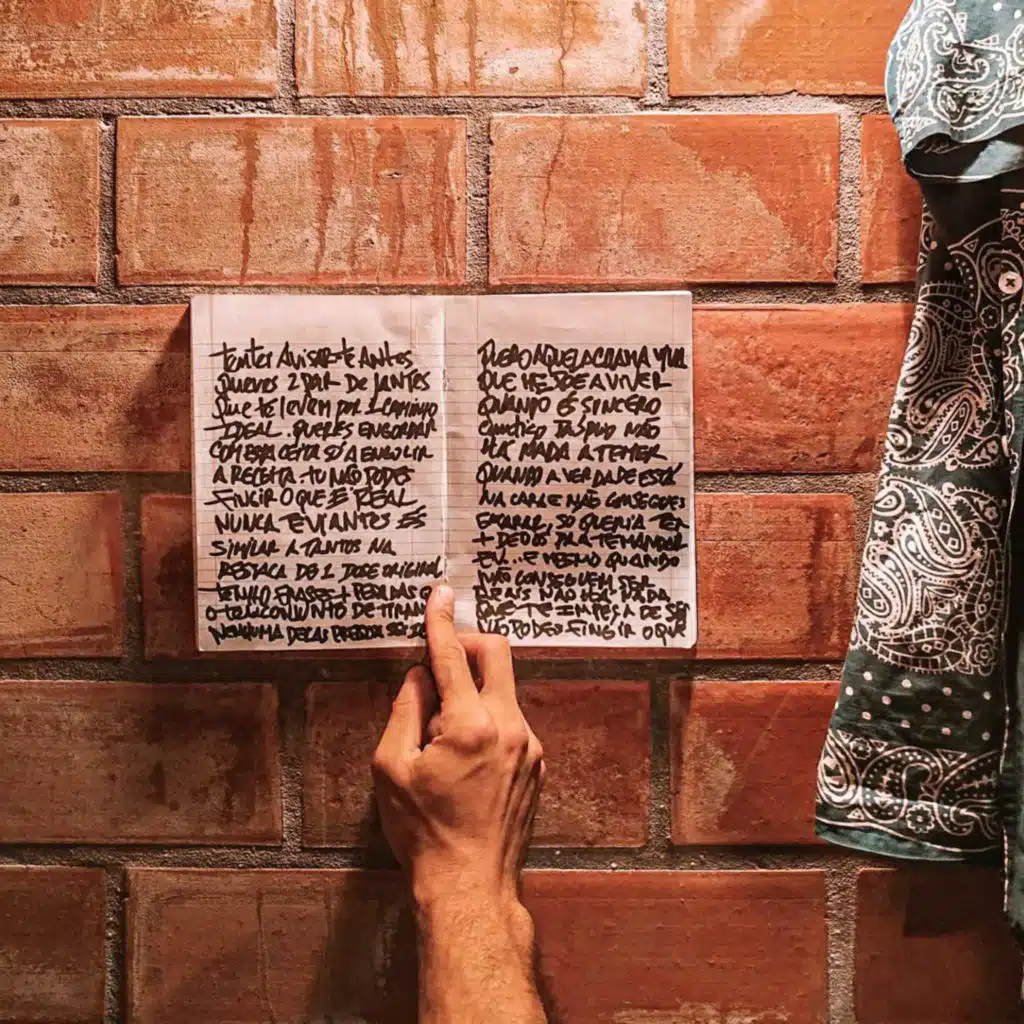 TENTEI AVISAR-TE ANTES
QUERES 2 PAR DE JANTES
QUE TE LEVEM POR 1 CAMINHO
IDEAL. QUERES ENGORDAR
COM ESSA CEITA SÓ A ENGOLIR
A RECEITA. TU NÃO PODES
FINGIR O QUE É REAL
NUNCA TE VI ANTES ÉS
SIMILAR A TANTOS NA
RESSACA DE 1 DOSE ORIGINAL
TENHO FRASES + PESADAS Q
O TEU CONJUNTO DE TIRAN
NENHUMA DELAS PRESSA SE
QUERO AQUELA CHAMA VIVA
QUE HESDE A VIVER
QUANDO É SINCERO
CONTIGO TASPUD NÃO
HÁ NADA A TEMER
QUANDO A VERDADE ESTÁ
NA CARA E NÃO CONSEGUES
SÓ QUERIA TER
+ DEDOS PRA TE MANDAR
E MESMO QUANDO
NÃO CONSEGUEM SER
REAIS NÃO HÁ NADA
QUE TE IMPEÇA DE SE
NÃO PODES FINGIR O QUE